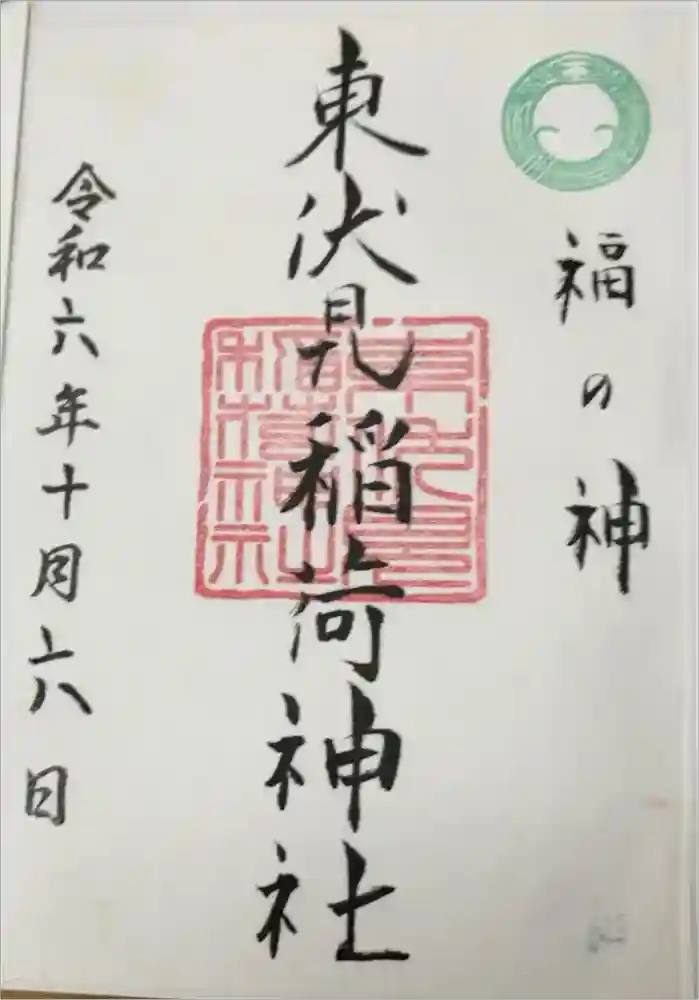 福の神
東伏見稲荷神社
令和六年十月六日